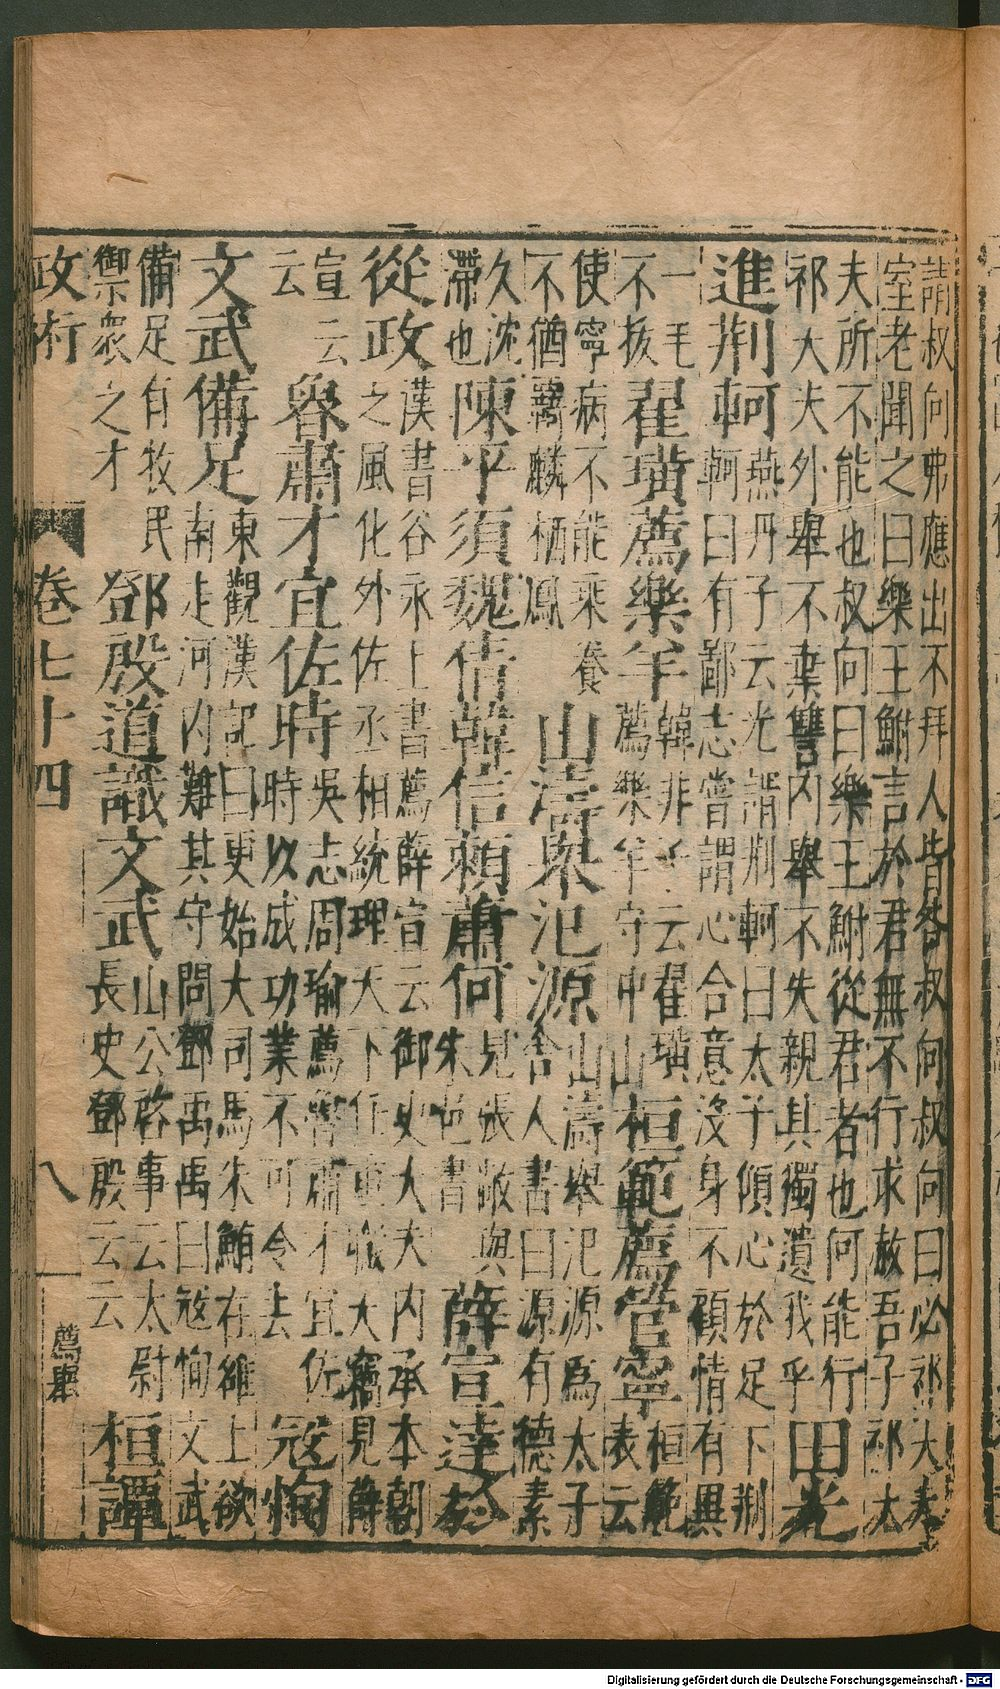 請叔向弗應出不拜人皆咎叔向叔向曰必祁大夫
室老聞之曰樂王鮒言於君無不行求赦吾子祁大
夫所不能也叔向曰樂王鮒從君者也何能行
祁大夫外舉不棄讐內舉不失親其獨遺我乎 田光
進荆軻 燕丹子云光謂荆軻曰太子傾心於足下荆
軻曰有鄙志嘗謂心合意沒身不顧情有異
一毛
不拔 翟璜薦樂羊 韓非子云翟璜
薦樂羊守中山 桓範薦管寧 桓範
表云
使寧病不能乘養
不猶羇麟栖鳳 山濤舉氾源 山濤舉氾源爲太子
舍人書曰源有德素
久沈
滯也 陳平須魏倩韓信賴蕭何 見張敞與
朱邑書 薛宣達於
從政 漢書谷永上書薦薛宣云御史大夫內承本朝
之風化外佐丞相統理天下任重職大窺見薛
宣云
云 魯肅才宜佐時 吳志周瑜薦魯肅才宜佐
時以成功業不可令去 寇恂
文武備足 東觀漢記曰更始大司馬朱鮪在雒上欲
南定河內難其守問鄧禹禹曰寇恂文武
備足有牧民
御衆之才 鄧殷道識文武 山公啓事云太尉
長史鄧殷云云 桓譚
政術 卷七十四 八 薦舉
Digitalisierung gefördert durch die Deutsche Forschungsgemeinschaft - DFG